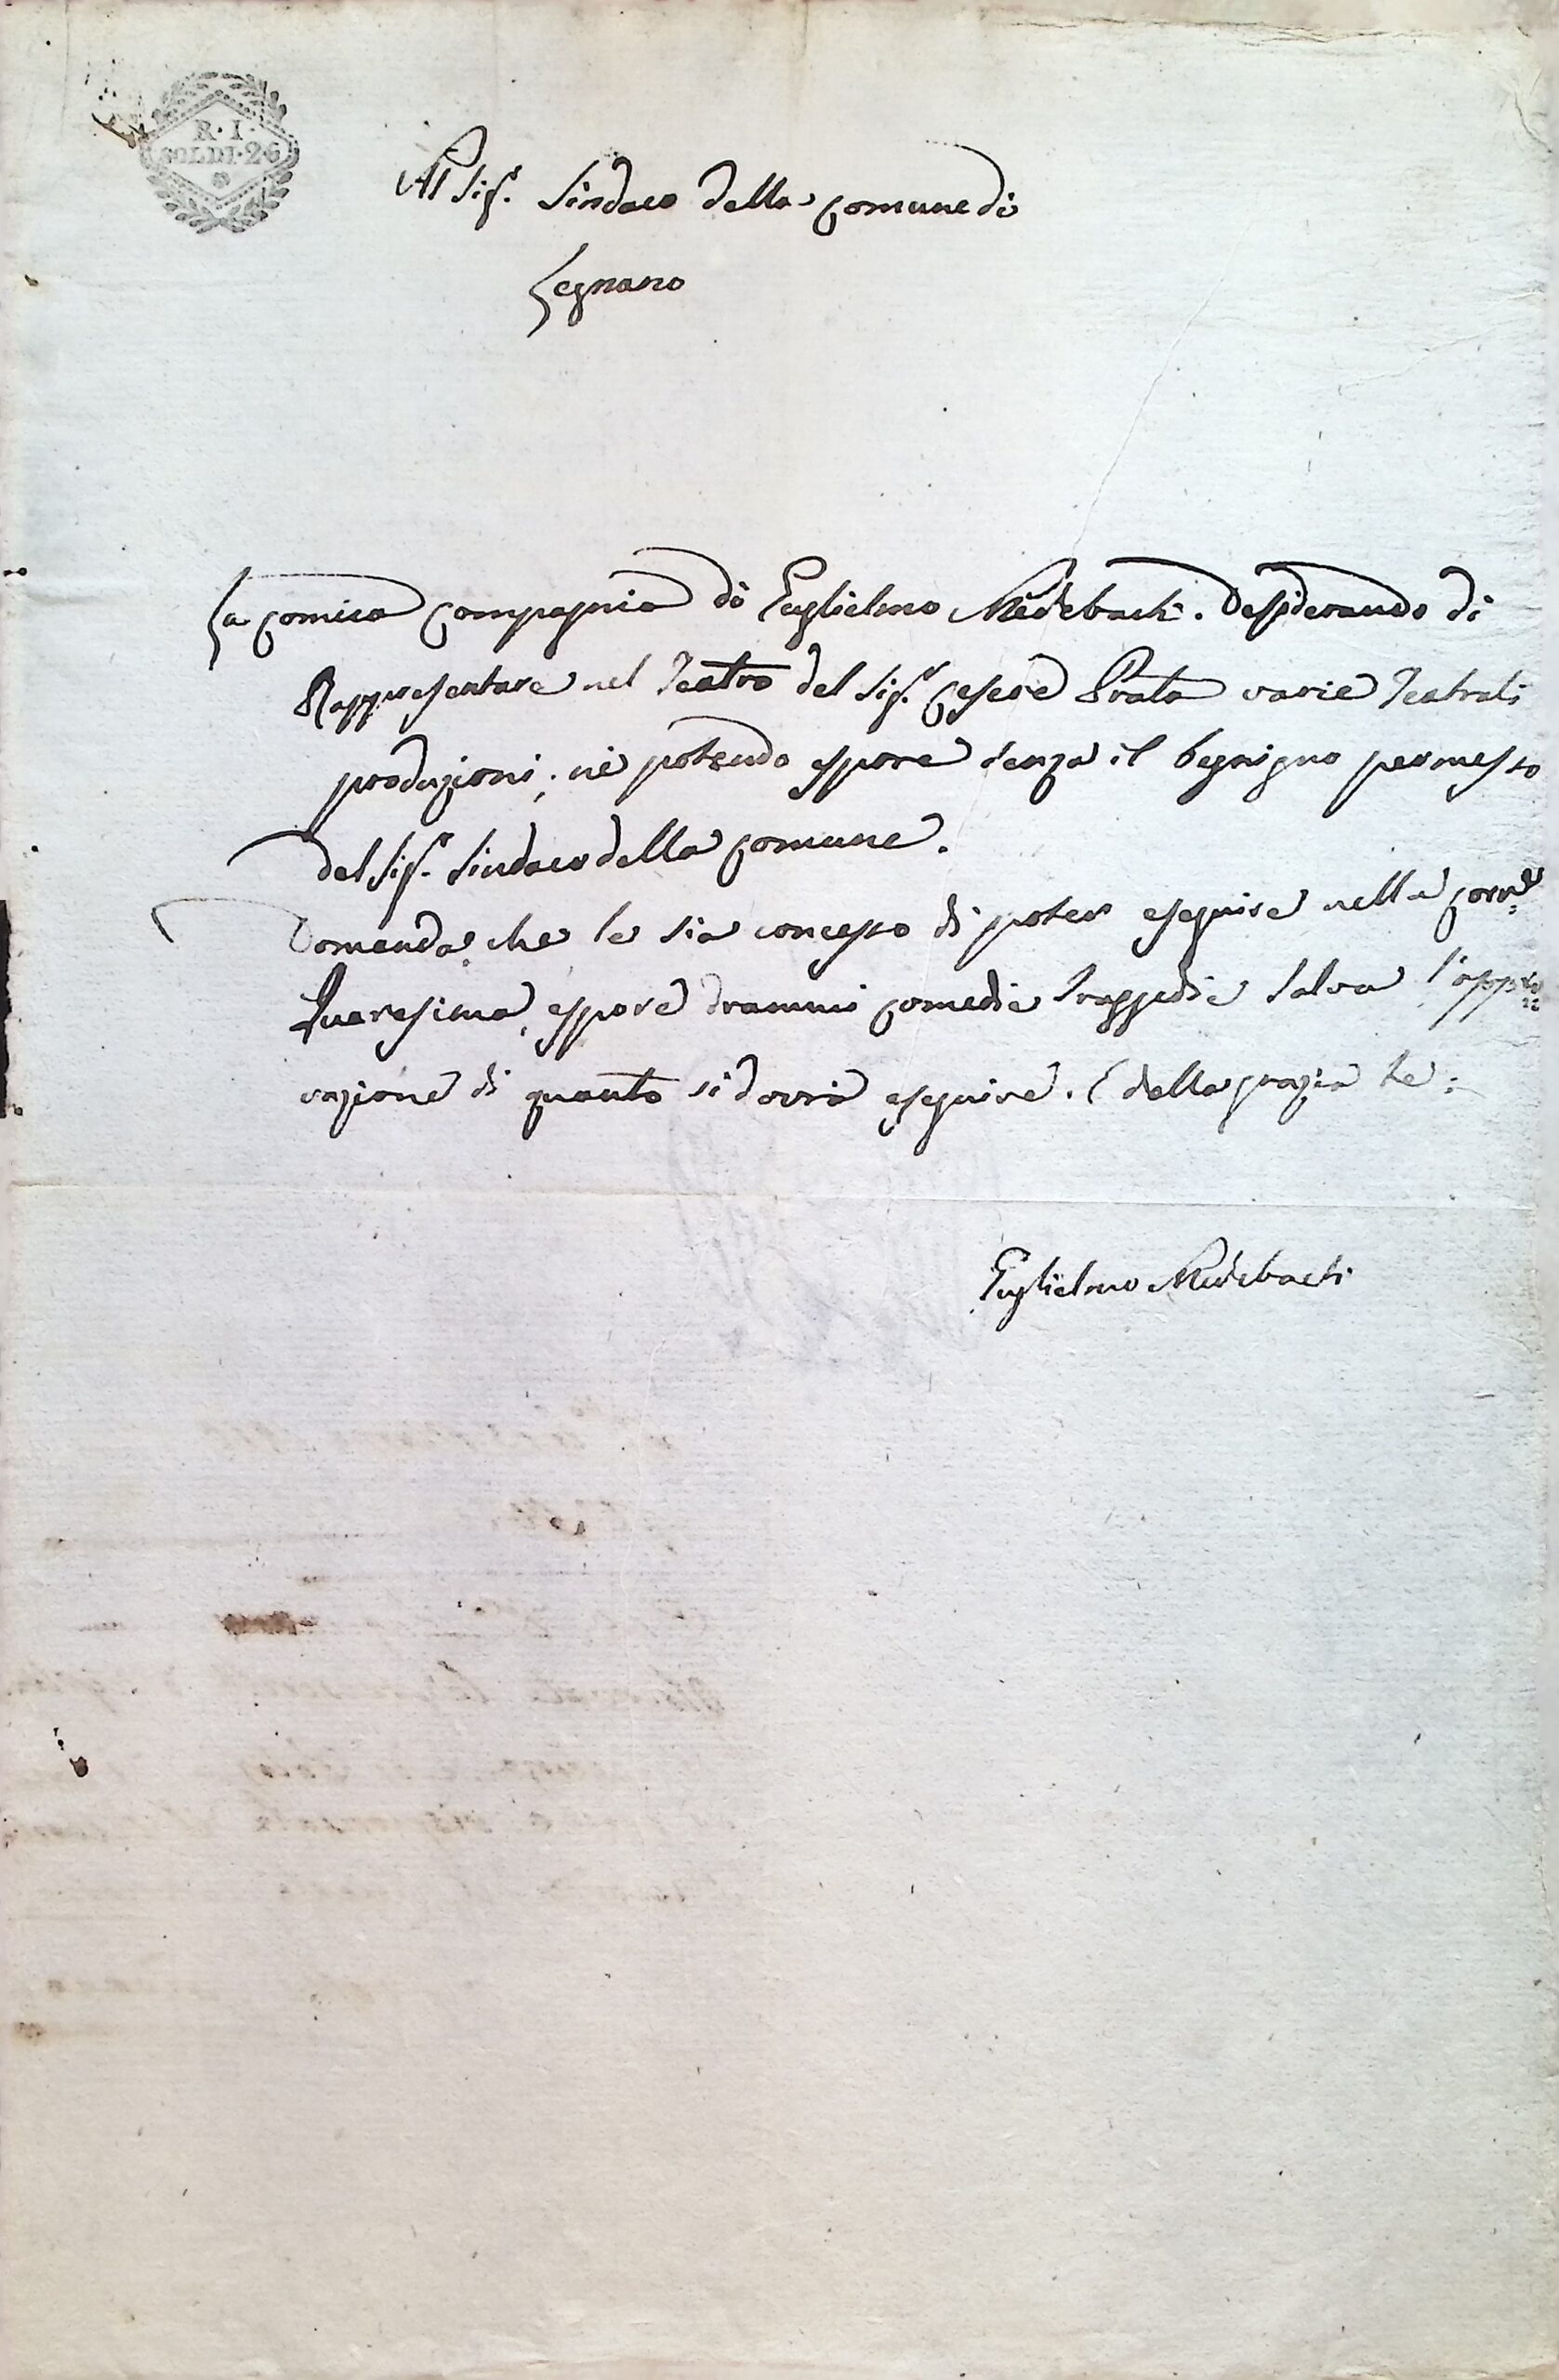 R. I.
SOLDI. 26
Al Sig.r Sindaco della Comune di
Legnano
La Comica Compagnia di Guglielmo Medebach. Desiderando di
Rappresentare nel Teatro del Sig.r Cesere Prata varie Teatrali
produzioni; nè potendo espore senza il begnigno permesso
del Sig.r Sindaco della Comune.
Domenda, che le sia concesso di poter eseguire nella Corr.e
Quaresima, espore drammi Comedie Traggedie salva l'appro=
vazione di quanto si dovrà eseguire. Della grazia &c:
Guglielmo Medebach